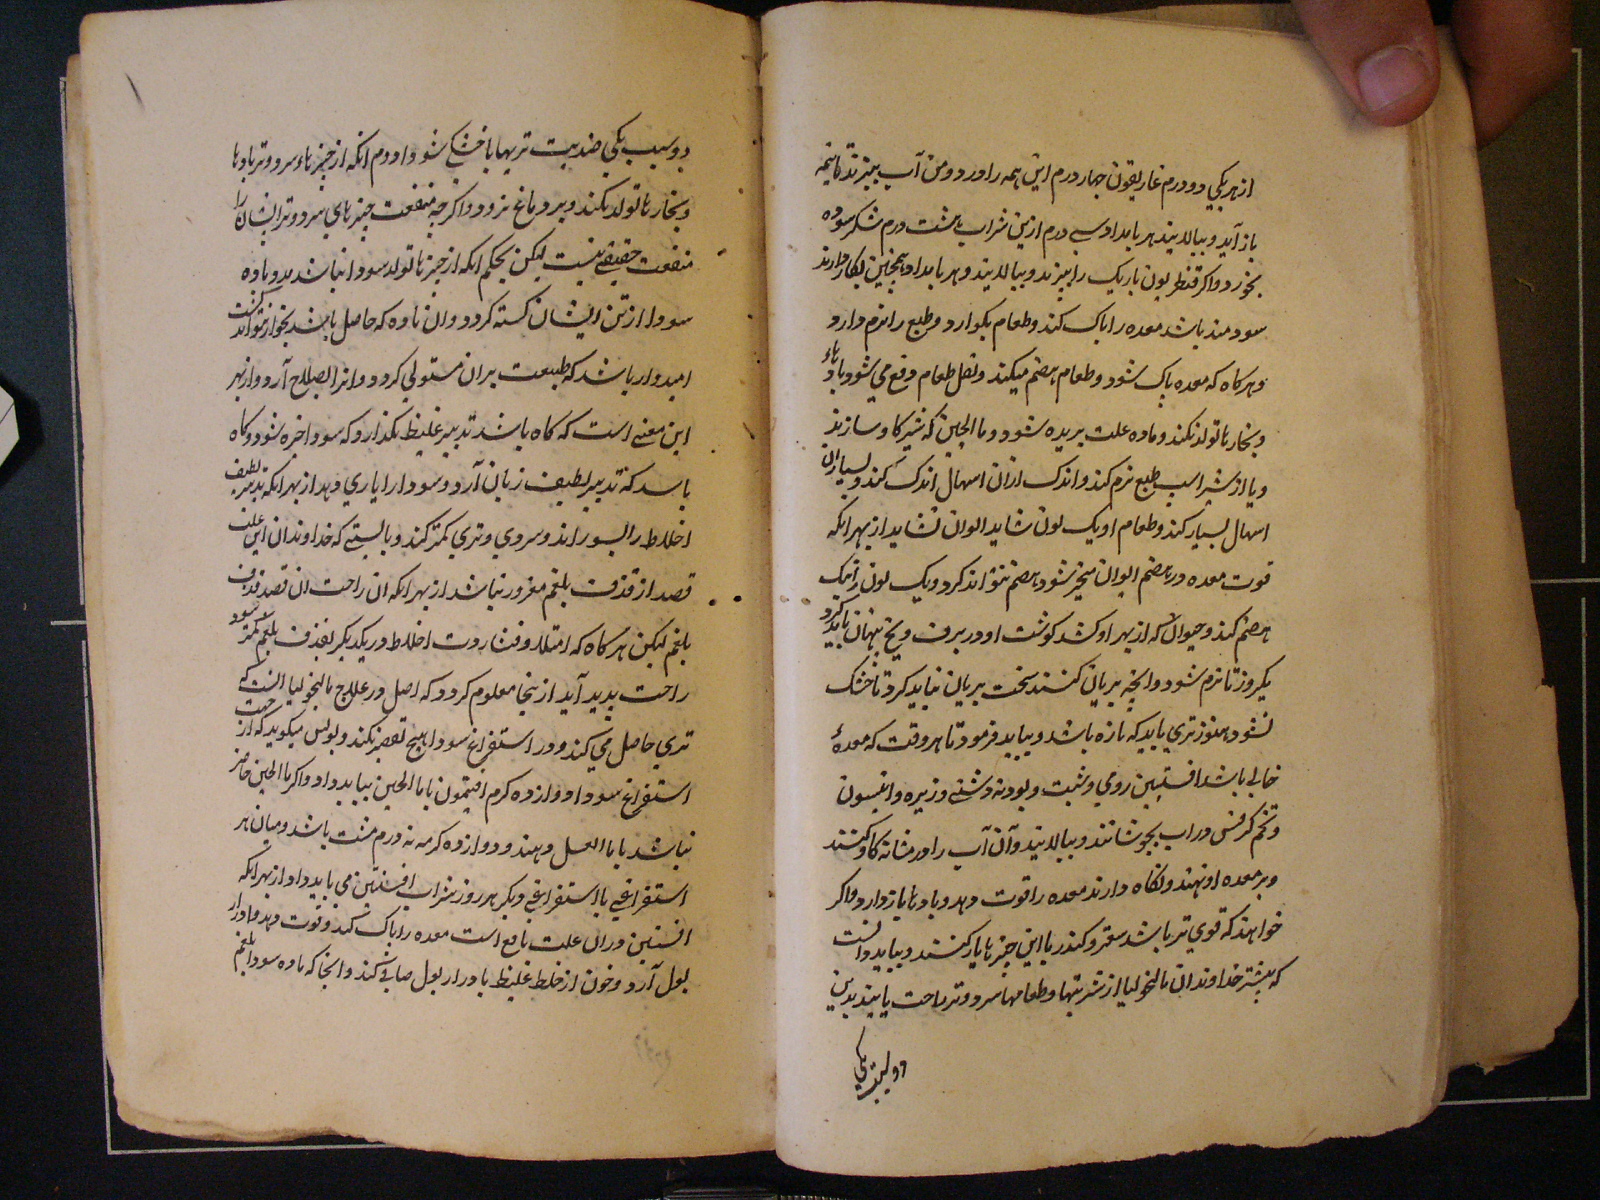 از هر یکی دو درم غاریقون چهار درم این همه را در دو من آب بپزند تا بنیمه
باز آید و ببالایند هر بامداد سی درم ازین شراب با هشت درم شکر سوده
بخورد و اگر قنطریون باریک را بپزند و ببالایند و هر بامداد همچنین بکار دارند
سودمند باشد معده را پاک کند و طعام بگوارد و طبع را نرم دارد
و هر کاه که معده پاک شود و طعام هضم میکند و ثقل طعام دفع می شود بادهاء
و بخارها تولد نکند و ماده علت بریده شود و ما الجبن که شیر کاو سازند
و یا از شیر اسب طبع نرم کند و اندک از ان اسهال اندک کند و بسیار ان
اسهال بسیار کند و طعام او یک لون شاید الوان نشاید از بهر انکه
قوت معده در هضم الوان متحیر شود هضم نتواند کرد و یک لون را نیک
هضم کند و حیوان که از بهر او کشد کوشت او در برف و یخ پنهان باید کرد
یکروز تا نرم شود و انچه بریان کنند سخت بریان نباید کرد تا خشک
نشود هنوز تری باید که تازه باشد و بباید فرمود تا هر وقت که معدهٔ
خالی باشد افسنتین رومی و شبت و پودنه دشتی و زیره و انیسون
و تخم کرفس در اب بجوشانند و ببالایند و آن آب را در مثانه کاو کنند
و بر معده او نهند و نکاه دارند معده را قوت دهد و بادها باز دارد و اکر
خواهند که قوی تر باشد سعتر و کندر با این چیزها یار کنند و بباید دانست
که بیشتر خداوندان مالنخولیا از شربتها و طعامها سرد و تر راحت یابند بدین
دو سبب یکی
دو سبب یکی ضدیت تریها با خشکی سودا دوم انکه از چیزهاء سرد و تر بادها
و بخارها تولد نکند و بر دماغ نرود و اکرچه منفعت چیزهای سرد و تر ایشان را
منفعت حقیقی نیست لیکن بحکم انکه از چیزها تولد سودا نباشد مدد ماده
سودا از تن ایشان کسسته کردد و ان ماده که حاصل باشد بخار نتواند کشت
امیدوار باشد که طبیعت بر ان مستولی کردد و انرا بصلاح آرد و از بهر
این معنی است که کاه باشد تدبیر غلیظ نکذارد که سودا خره شود و کاه
باسد که تدبیر لطیف زیان آرد و سودا را یاری دهد از بهر انکه تدبیر لطیف
اخلاط را بسوراند و سردی و تری کمتر کند و بایستی که خداوندان این علت
قصد از قذف بلغم مغرور نباشد از بهر انکه ان راحت ان قصد قذف
بلغم لیکن هر کاه که امتلا و فشاردت اخلاط در یکدیکر بقذف بلغم کمتر شود
راحت پدید آید از ینجا معلوم کردد که اصل در علاج مالنخولیا انست که
تری حاصل می کند و در استفراغ سودا هیچ تقصیر نکند و بولس میکوید که از جهت
استفراغ سودا دوازده کرم افتیمون با ما الجبن بباید داد و اکر ما الجبن حاضر
نباشد با ما العسل دهند و دوازده کرمه نه درم مشت باشد و میان هر
استفراغی با استفراغی دیکر هر روز شراب افسنتین می باید داد از بهر انکه
افسنتین در ان علت نافع است معده را پاک کند و قوت دهد و ادرار
بول آرد و خون از خلط غلیظ با ادرار بول صافی کند و انجا که ماده سودا بلغم